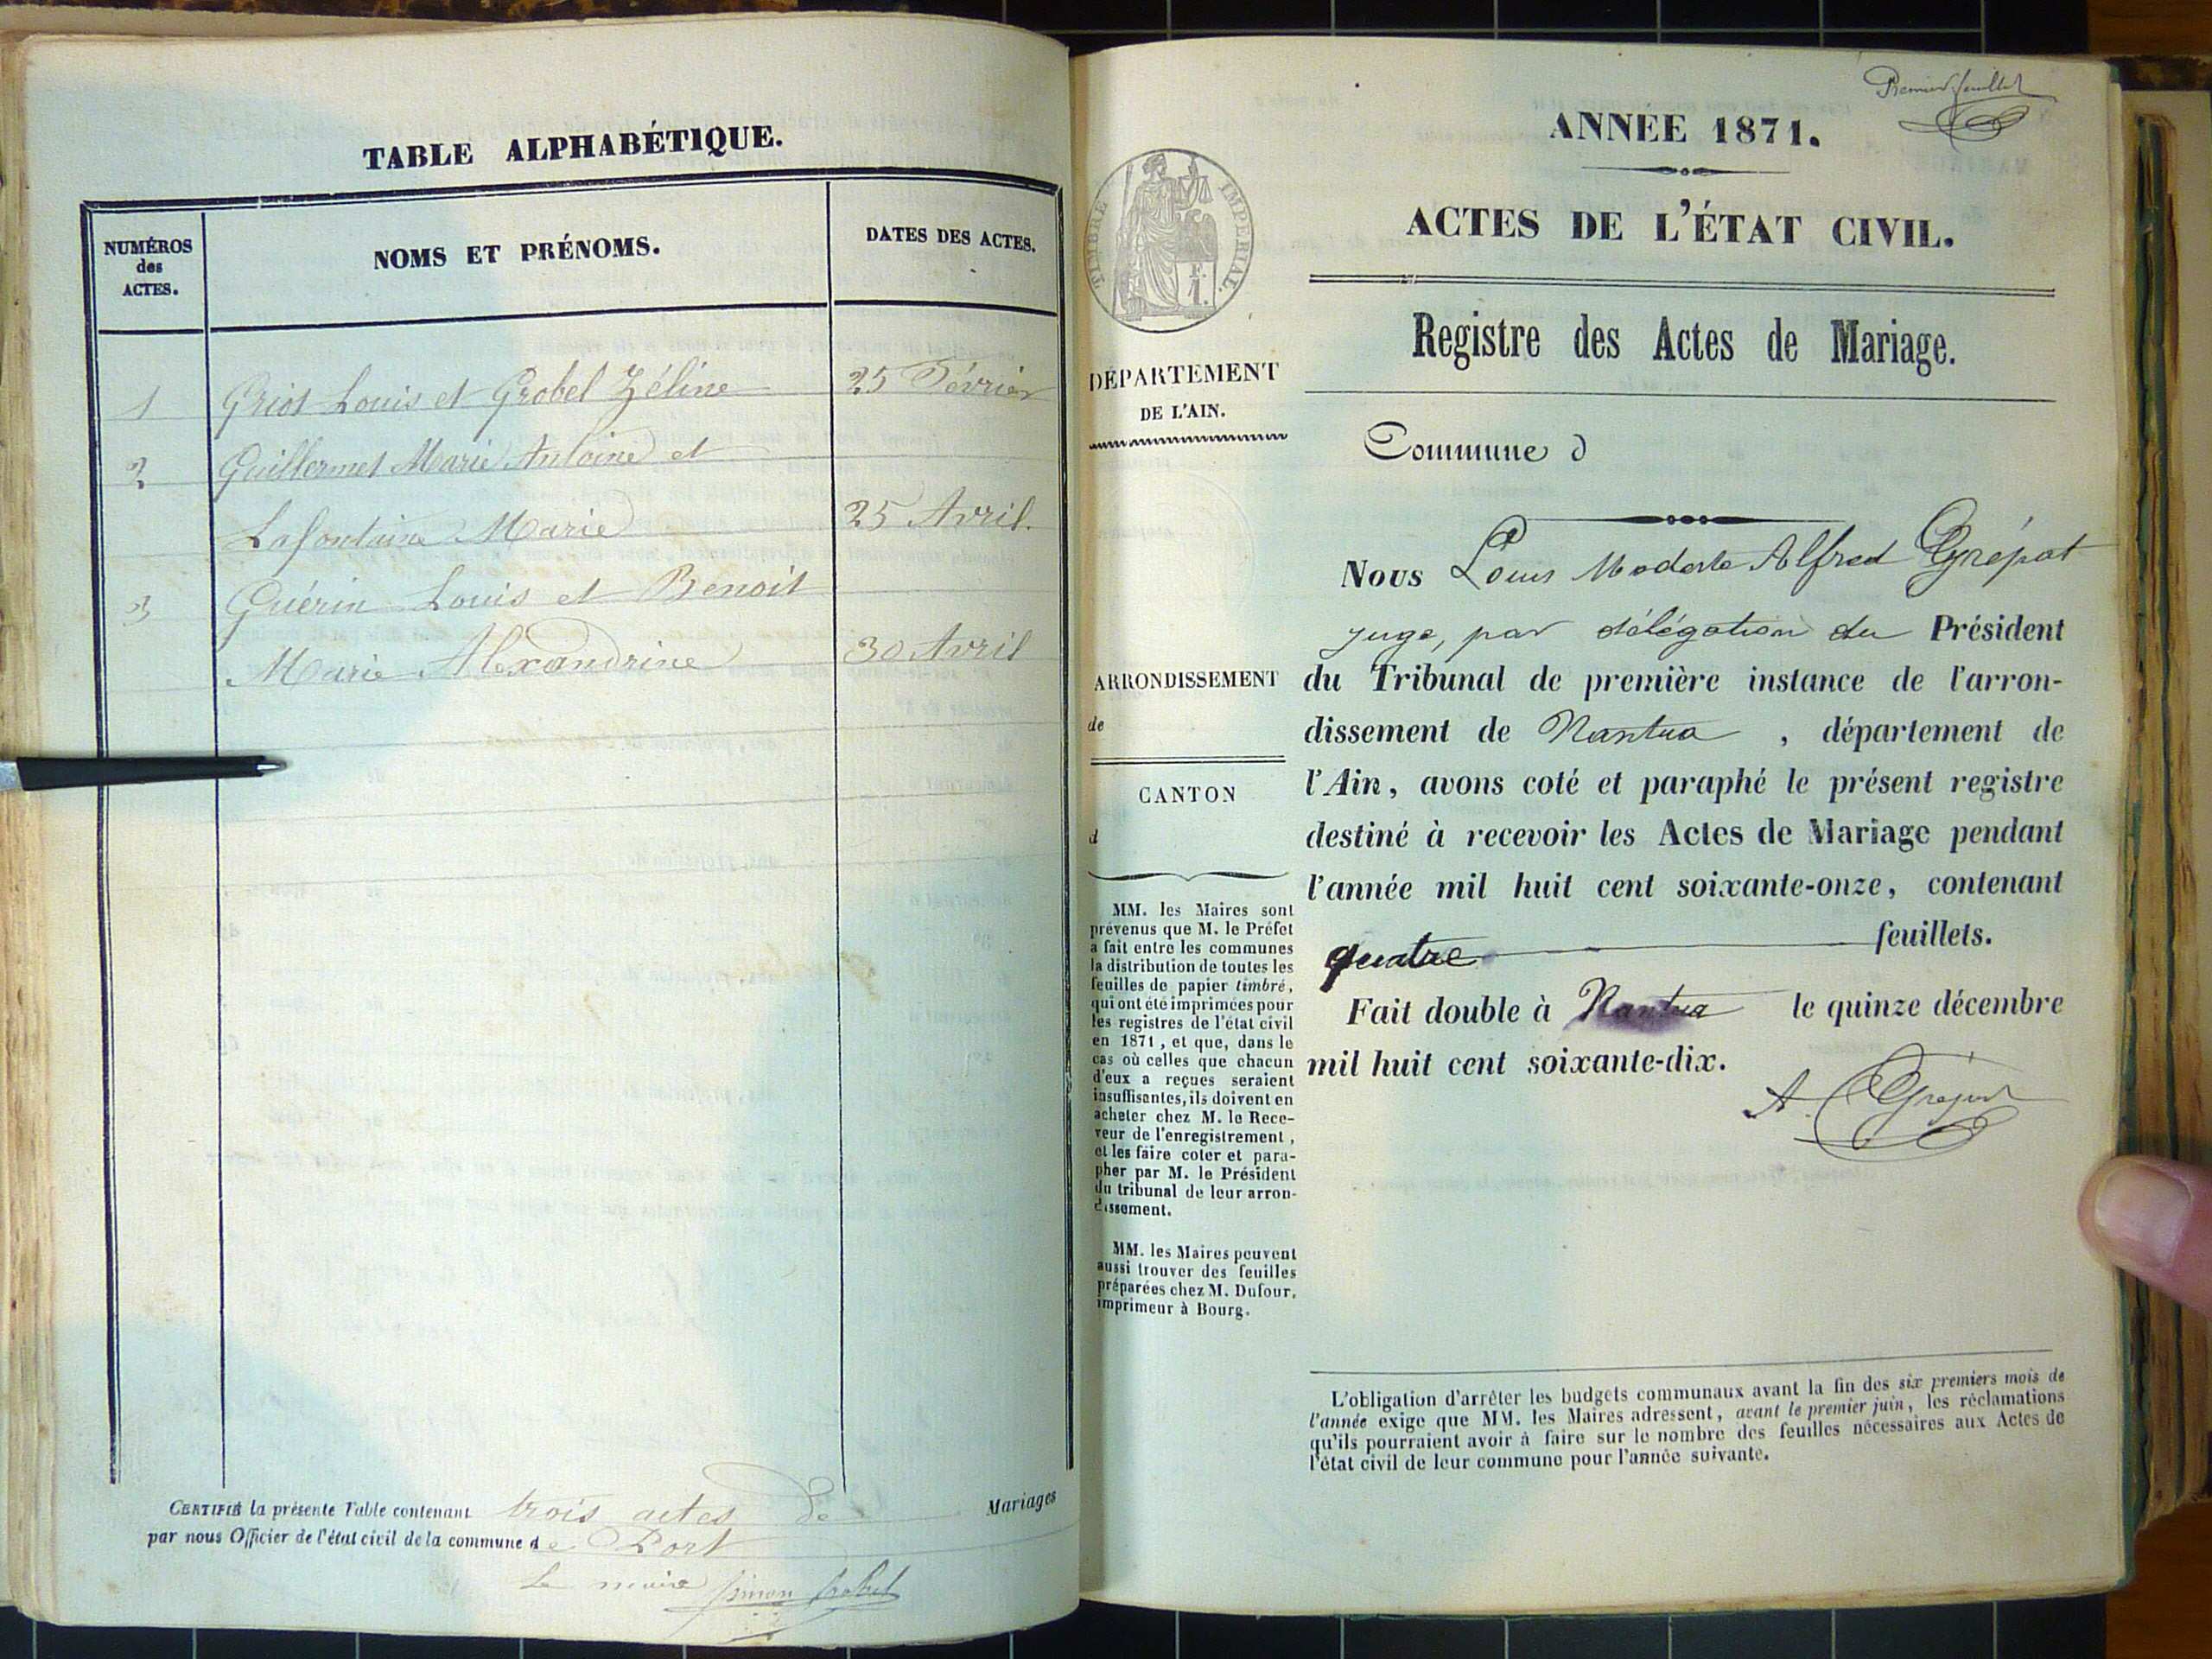 TABLE ALPHABÉTIQUE.
NUMÉROS
des
ACTES.
NOMS ET PRÉNOMS.
DATES DES ACTES.
1 Griot Louis et Grobel Zéline 25 Février
2 Guillermet Marie Antoine et
Lafontaine Marie 25 Avril.
3 Guérin Louis et Benoit
Marie Alexandrine 30 Avril
CERTIFIÉ la présente Table contenant trois actes de Mariages
par nous Officier de l'état civil de la commune de Port
Le maire Simon Grobel
Premier feuillet
ANNÉE 1871.
ACTES DE L'ÉTAT CIVIL.
Registre des Actes de Mariage.
TIMBRE IMPÉRIAL.
1 F.
DÉPARTEMENT
DE L'AIN.
Commune d
ARRONDISSEMENT
de
CANTON
d
MM. les Maires sont
prévenus que M. le Préfet
a fait entre les communes
la distribution de toutes les
feuilles de papier timbré,
qui ont été imprimées pour
les registres de l'état civil
en 1871, et que, dans le
cas où celles que chacun
d'eux a reçues seraient
insuffisantes, ils doivent en
acheter chez M. le Rece-
veur de l'enregistrement,
et les faire coter et para-
pher par M. le Président
du tribunal de leur arron-
dissement.
MM. les Maires peuvent
aussi trouver des feuilles
préparées chez M. Dufour,
imprimeur à Bourg.
Nous Louis Modeste Alfred Grépat
juge, par délégation du Président
du Tribunal de première instance de l'arron-
dissement de Nantua , département de
l'Ain, avons coté et paraphé le présent registre
destiné à recevoir les Actes de Mariage pendant
l'année mil huit cent soixante-onze, contenant
quatre feuillets.
Fait double à Nantua le quinze décembre
mil huit cent soixante-dix.
A. Grépat
L'obligation d'arrêter les budgets communaux avant la fin des six premiers mois de
l'année exige que MM. les Maires adressent, avant le premier juin, les réclamations
qu'ils pourraient avoir à faire sur le nombre des feuilles nécessaires aux Actes de
l'état civil de leur commune pour l'année suivante.